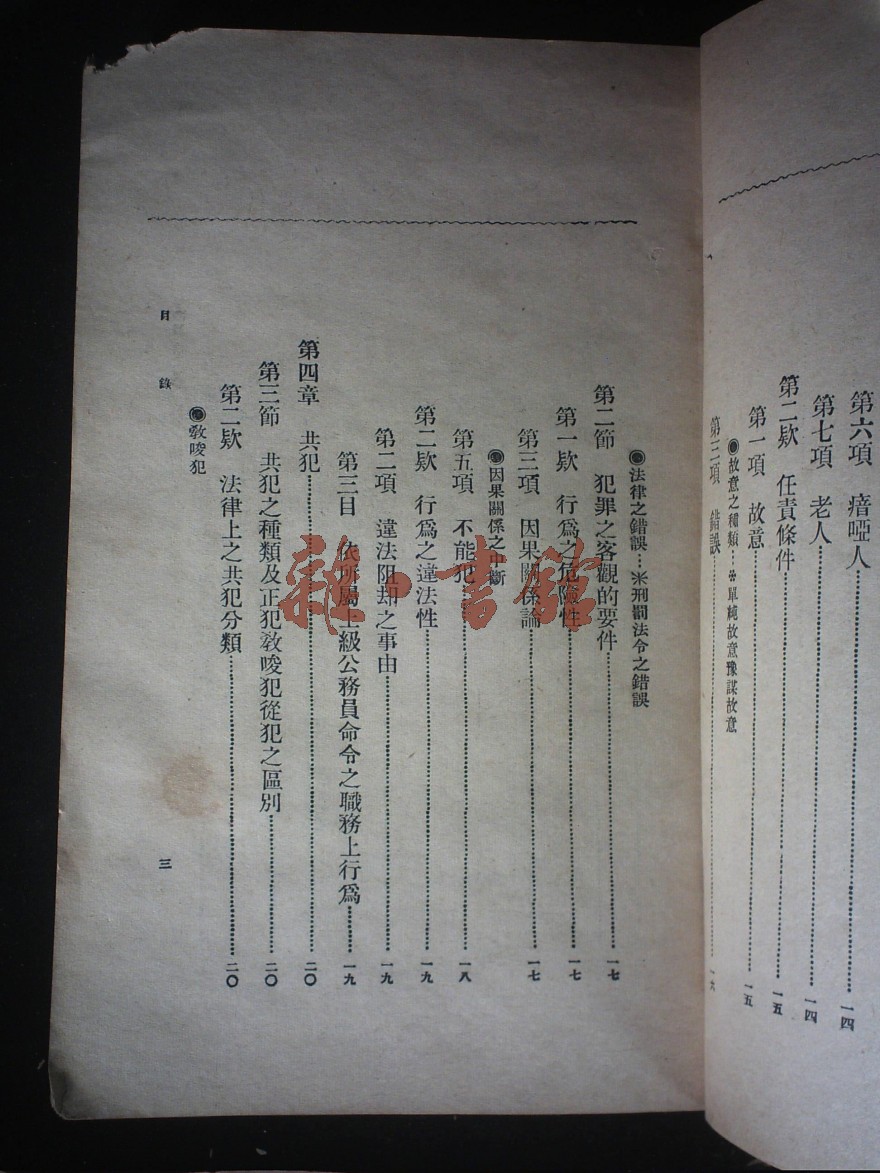 第六項 瘖啞人……一四
第七項 老人……一四
第二欵 任責條件……一五
第一項 故意……一五
◉故意之種類…※單純故意豫謀故意
第三項 錯誤……一六
◉法律之錯誤…※刑罰法令之錯誤
第二節 犯罪之客觀的要件……一七
第一欵 行爲之危險性……一七
第三項 因果關係論……一七
◉因果關係之中斷
第五項 不能犯……一八
第二欵 行爲之違法性……一九
第二項 違法阻却之事由……一九
第三目 依所屬上級公務員命令之職務上行爲……一九
第四章 共犯……二〇
第三節 共犯之種類及正犯敎唆犯從犯之區別……二〇
第二欵 法律上之共犯分類……二〇
◉敎唆犯
目錄 三
雜·書館